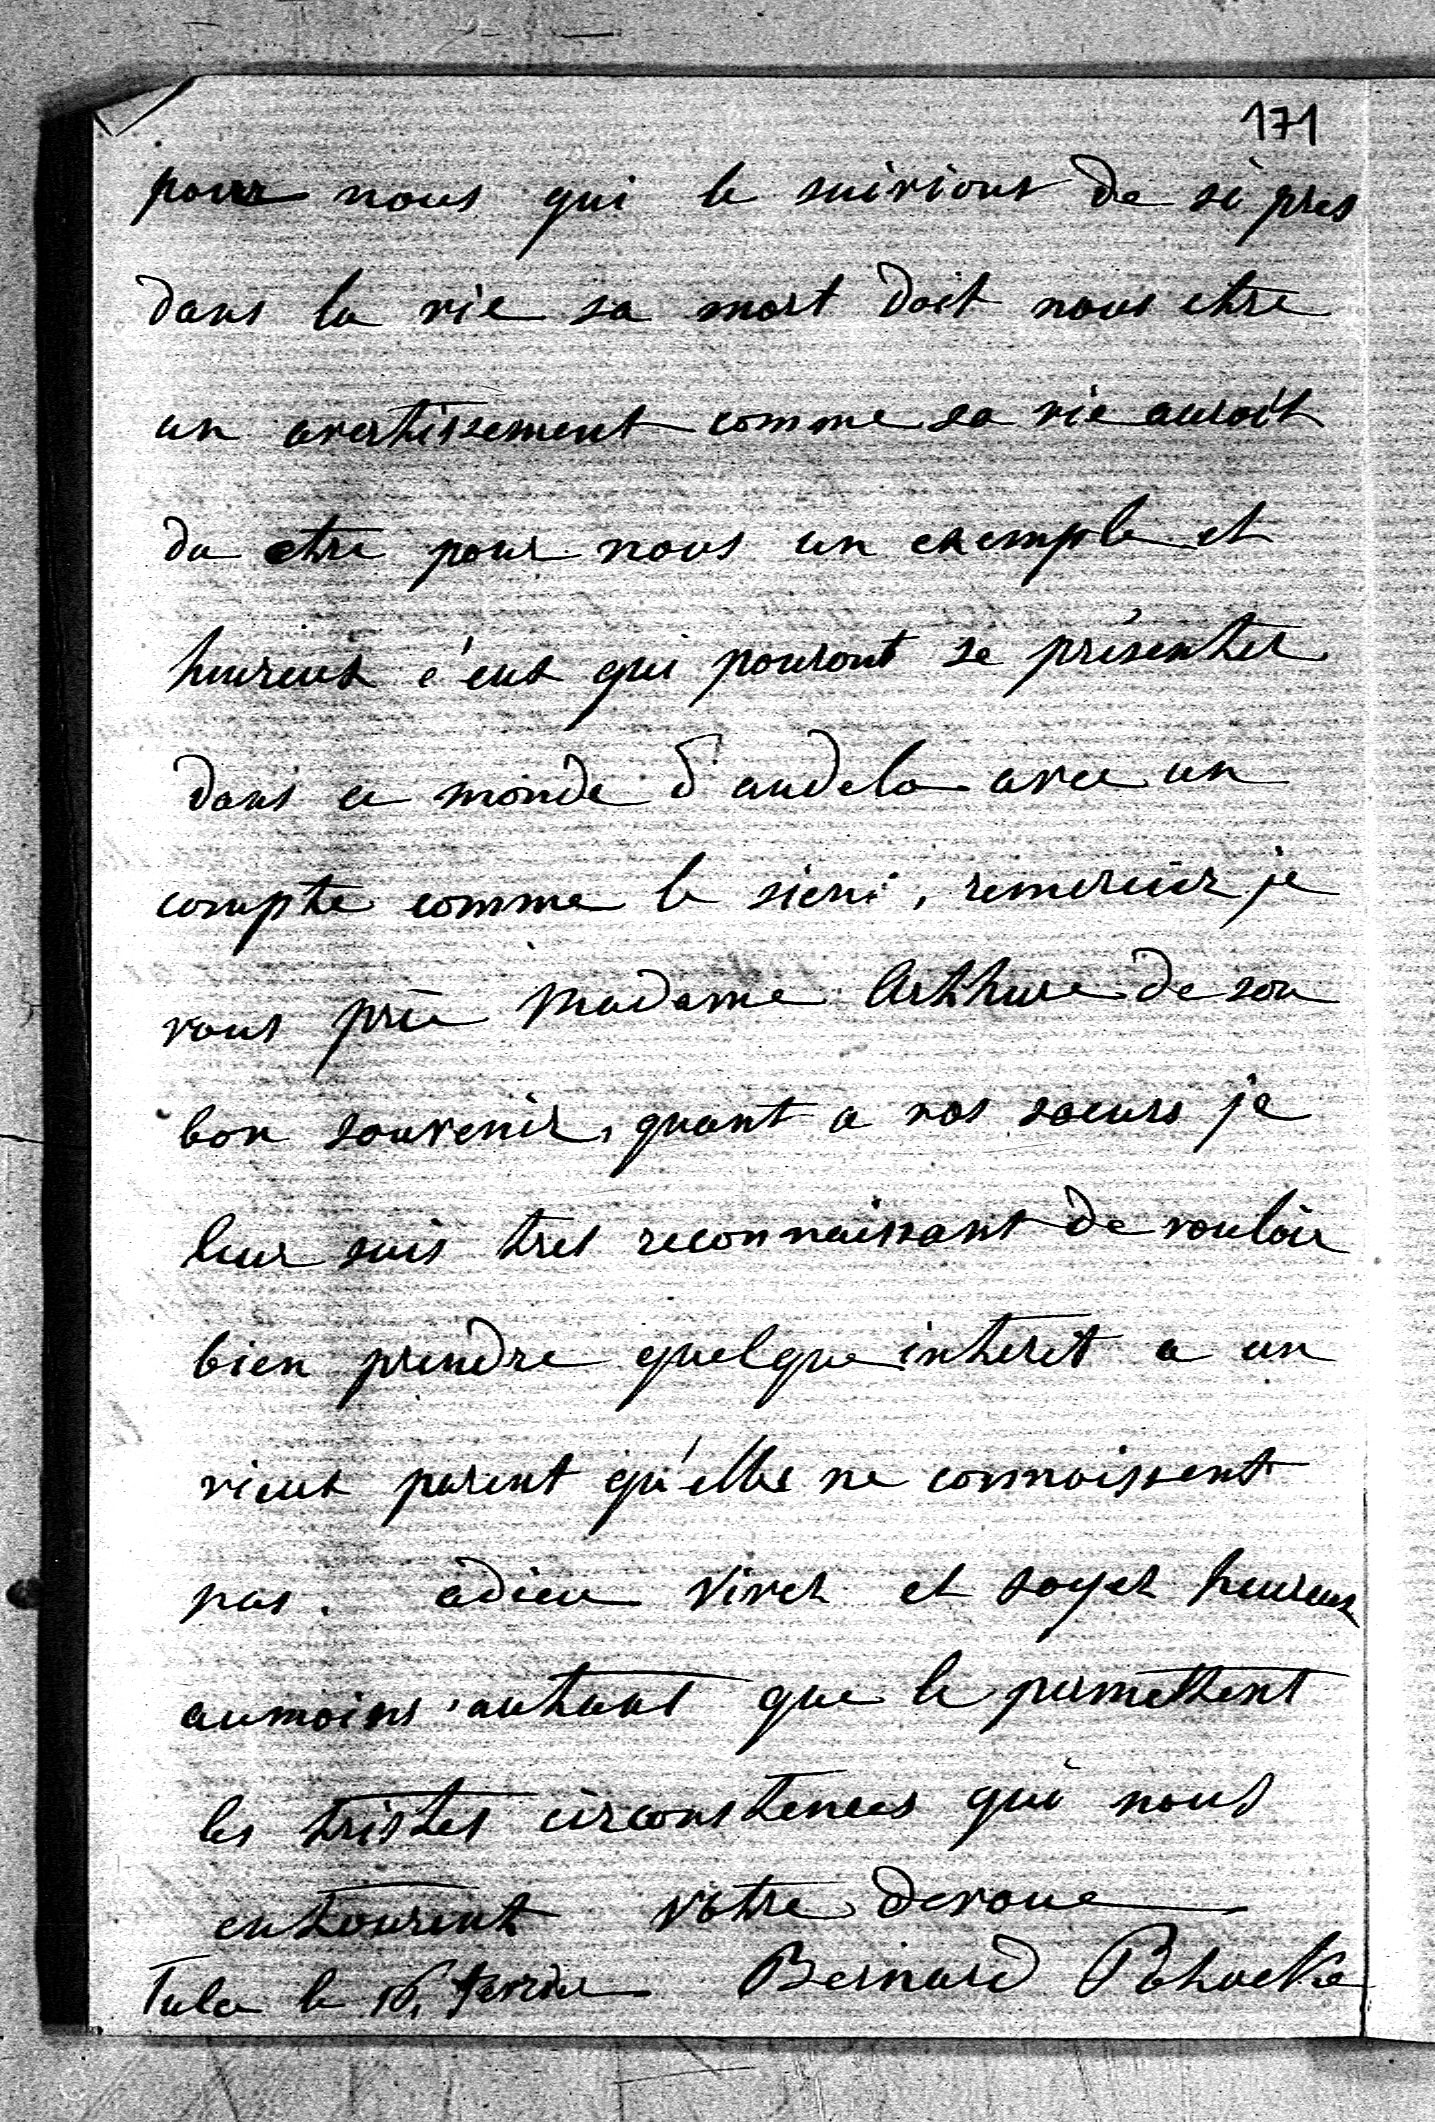 171
pour nous qui le suivions de si pres
dans la vie sa mort doit nous etre
un avertissement comme sa vie auroit
du etre pour nous un exemple et
heureux c'eux qui pouront se présenter
dans ce monde d'audela avec un
compte comme le sien, remercier je
vous prie Madame Arthure de son
bon souvenir, quant a vos soeurs je
leur suis tres reconnaissant de vouloir
bien prendre quelque interet a un
vieux parent qu'elles ne connoissent
pas. adieu vivez et soyez heureux
aumoins autant que le permettent
les tristes circonstences qui nous
entourent votre devoué
Tula le 16, Bernard